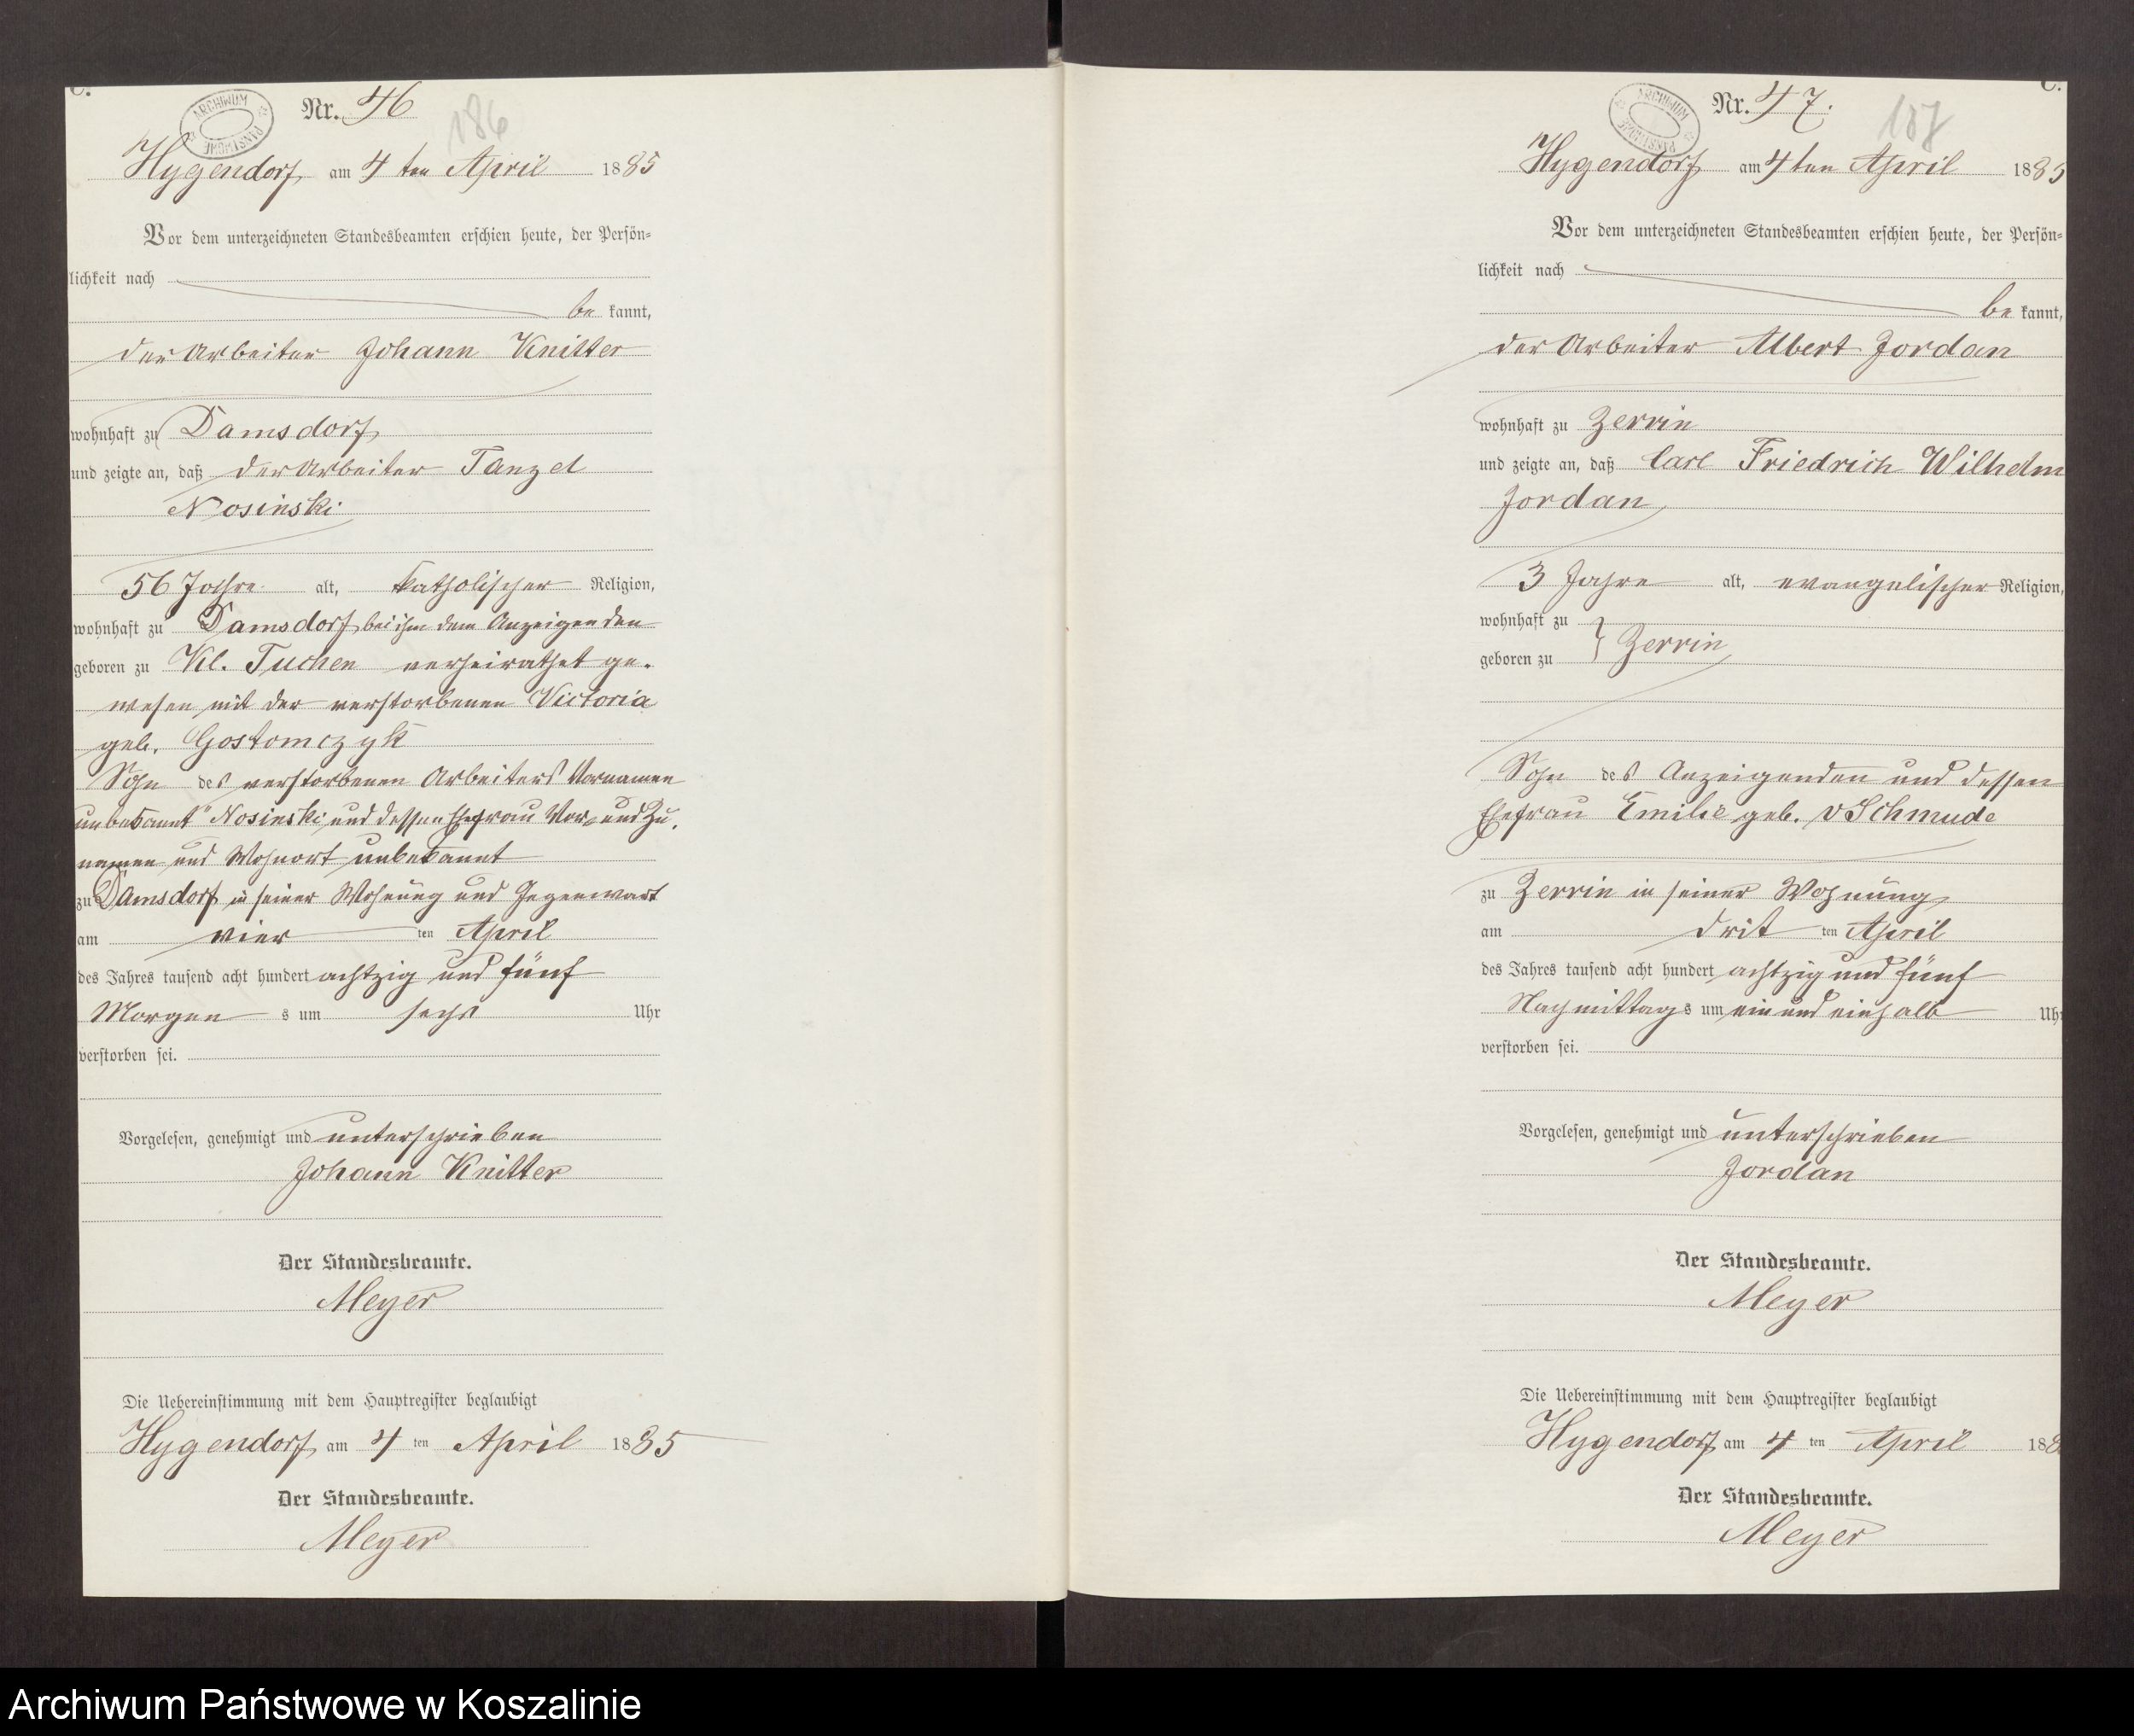 C.
Nr. 46
186
Hygendorf am 4 ten April 1885
Vor dem unterzeichneten Standesbeamten erschien heute, der Persön=
lichkeit nach
be kannt,
der Arbeiter Johann Knitter
wohnhaft zu Damsdorf
und zeigte an, daß der Arbeiter Tanzel
Nosinski
56 Jahre alt, katholischer Religion,
wohnhaft zu Damsdorf bei ihm dem Anzeigenden
geboren zu Kl. Tuchen verheirathet ge-
wesen mit der verstorbenen Victoria
geb. Gostomczyk
Sohn des verstorbenen Arbeiters Vornamen
unbekannt Nosinski und dessen Ehefrau Vor- und Zu-
namen und Wohnort unbekannt
zu Damsdorf in seiner Wohnung und Gegenwart
am vier ten April
des Jahres tausend acht hundert achtzig und fünf
Morgen s um sechs Uhr
verstorben sei.
Vorgelesen, genehmigt und unterschrieben
Johann Knitter
Der Standesbeamte.
Meyer
Die Uebereinstimmung mit dem Hauptregister beglaubigt
Hygendorf am 4 ten April 1885
Der Standesbeamte.
Meyer
C.
Nr. 47.
187
Hygendorf am 4 ten April 1885
Vor dem unterzeichneten Standesbeamten erschien heute, der Persön=
lichkeit nach
be kannt,
der Arbeiter Albert Jordan
wohnhaft zu Zerrin
und zeigte an, daß Carl Friedrich Wilhelm
Jordan
3 Jahre alt, evangelischer Religion,
wohnhaft zu
geboren zu } Zerrin
Sohn des Anzeigenden und dessen
Ehefrau Emilie geb. v Schmude
zu Zerrin in seiner Wohnung
am drit ten April
des Jahres tausend acht hundert achtzig und fünf
Nachmittags um ein und einhalb Uhr
verstorben sei.
Vorgelesen, genehmigt und unterschrieben
Jordan
Der Standesbeamte.
Meyer
Die Uebereinstimmung mit dem Hauptregister beglaubigt
Hygendorf am 4 ten April 188
Der Standesbeamte.
Meyer
Archiwum Państwowe w Koszalinie